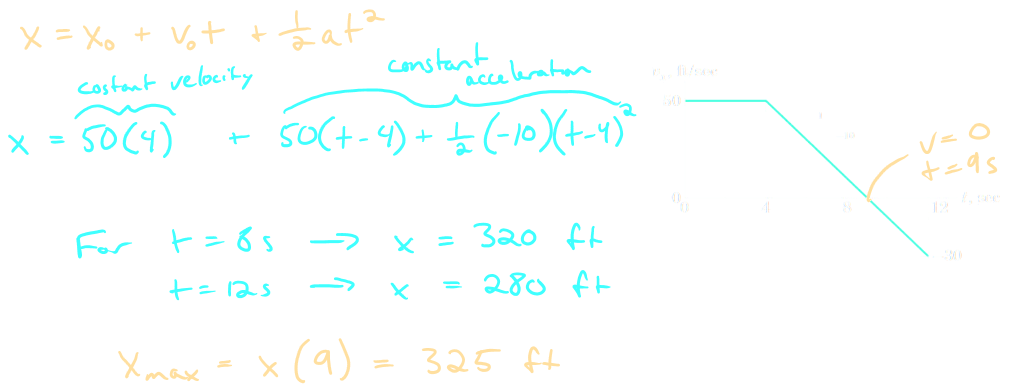 x = x₀ + v₀t + ½at²
costant velocity
constant acceleration
x = 50(4) + 50(t-4) + ½(-10)(t-4)²
For t = 8s → x = 320 ft
t = 12s → x = 280 ft
x_max = x(9) = 325 ft
ft/sec
50
v = 0
t = 9s
0
0 4 8 12 t, sec